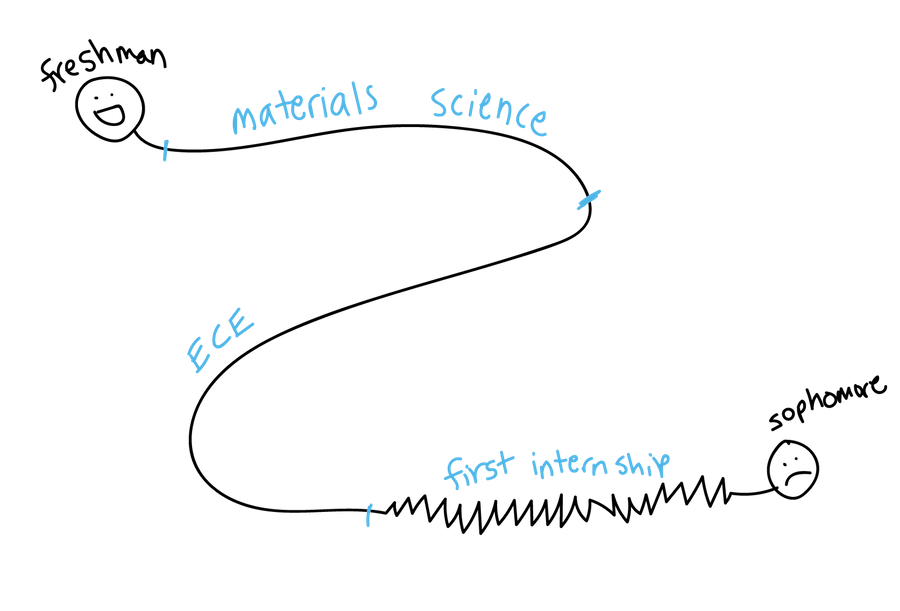 freshman
materials science
ECE
first internship
sophomore